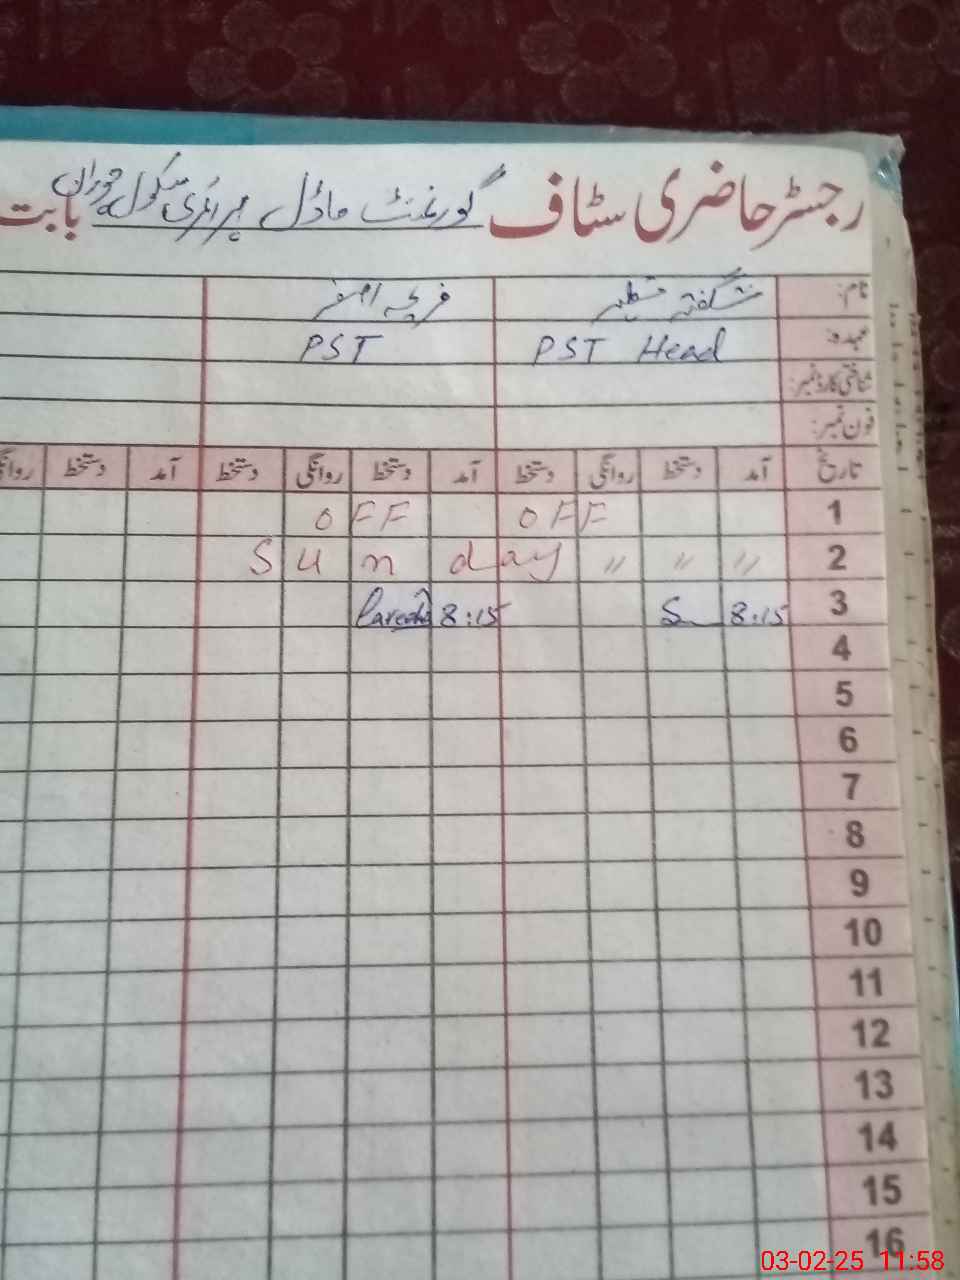 رجسٹر حاضری سٹاف گورنمنٹ ماڈل پرائمری سکول بابت
نام: شگفتہ فریحہ
عہدہ: PST Head PST
شناختی کارڈ نمبر:
فون نمبر:
تاریخ آمد دستخط روانگی دستخط آمد دستخط روانگی دستخط آمد دستخط روانگی
1 OFF OFF
2 Sunday " " "
3 8:15 8:15
4
5
6
7
8
9
10
11
12
13
14
15
16
03-02-25 11:58